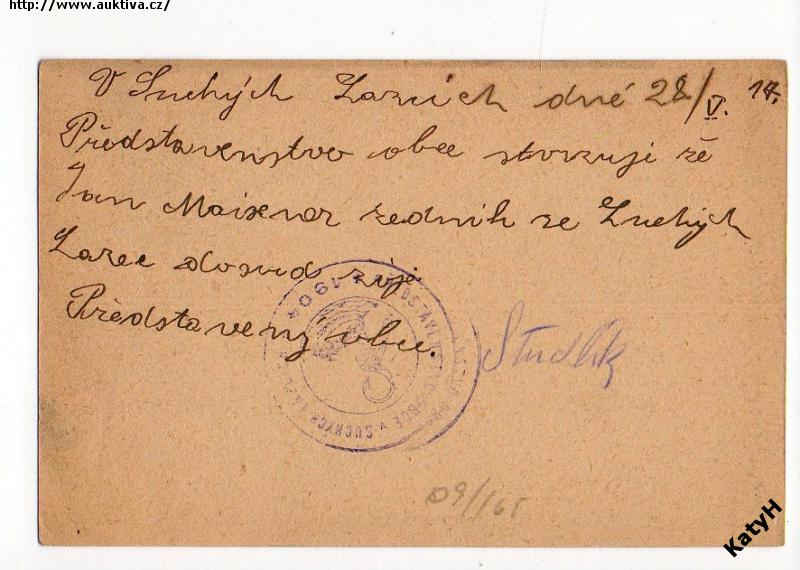 http://www.auktiva.cz/
V Suchých Lazcich dné 28/V. 17.
Představenstvo obce stvrzuji že
Jan Maixnar žedník ze Suchých
Lazec dosud žije
Představený obce.
Studlík
1904
OBCE v SUCHÝCH
09/165
KatyH